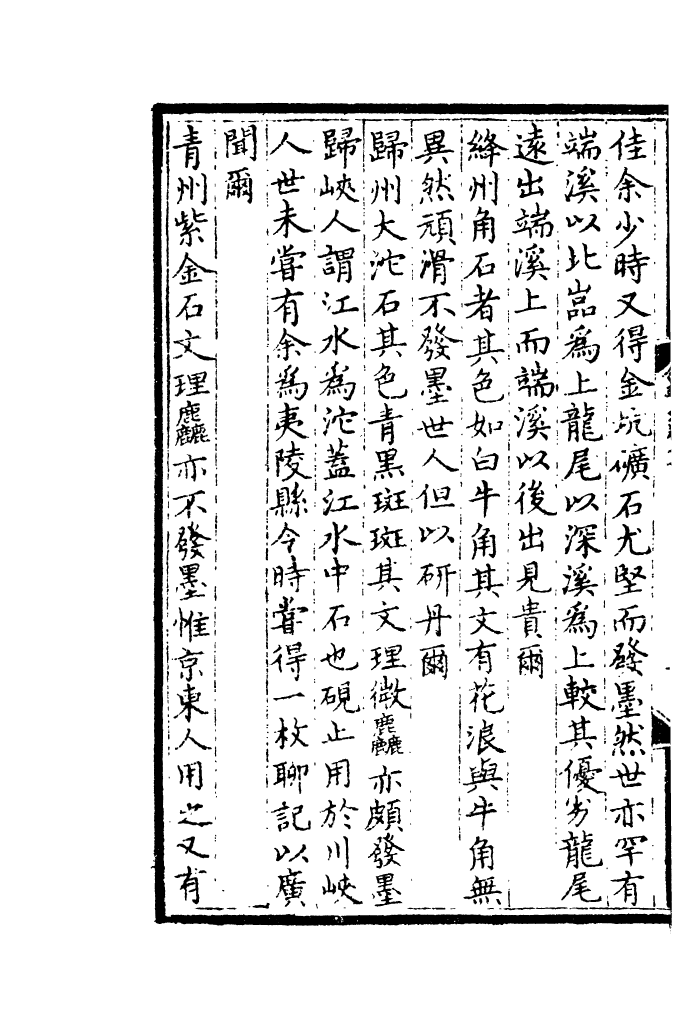 佳余少時又得金坑礦石尤堅而發墨然世亦罕有
端溪以北嵓為上龍尾以深溪為上較其優劣龍尾
遠出端溪上而端溪以後出見貴爾
絳州角石者其色如白牛角其文有花浪與牛角無
異然頑滑不發墨世人但以研丹爾
歸州大沱石其色青黑斑斑其文理微麤亦頗發墨
歸峽人謂江水為沱蓋江水中石也硯止用於川峽
人世未嘗有余為夷陵縣令時嘗得一枚聊記以廣
聞爾
青州紫金石文理麤亦不發墨惟京東人用之又有